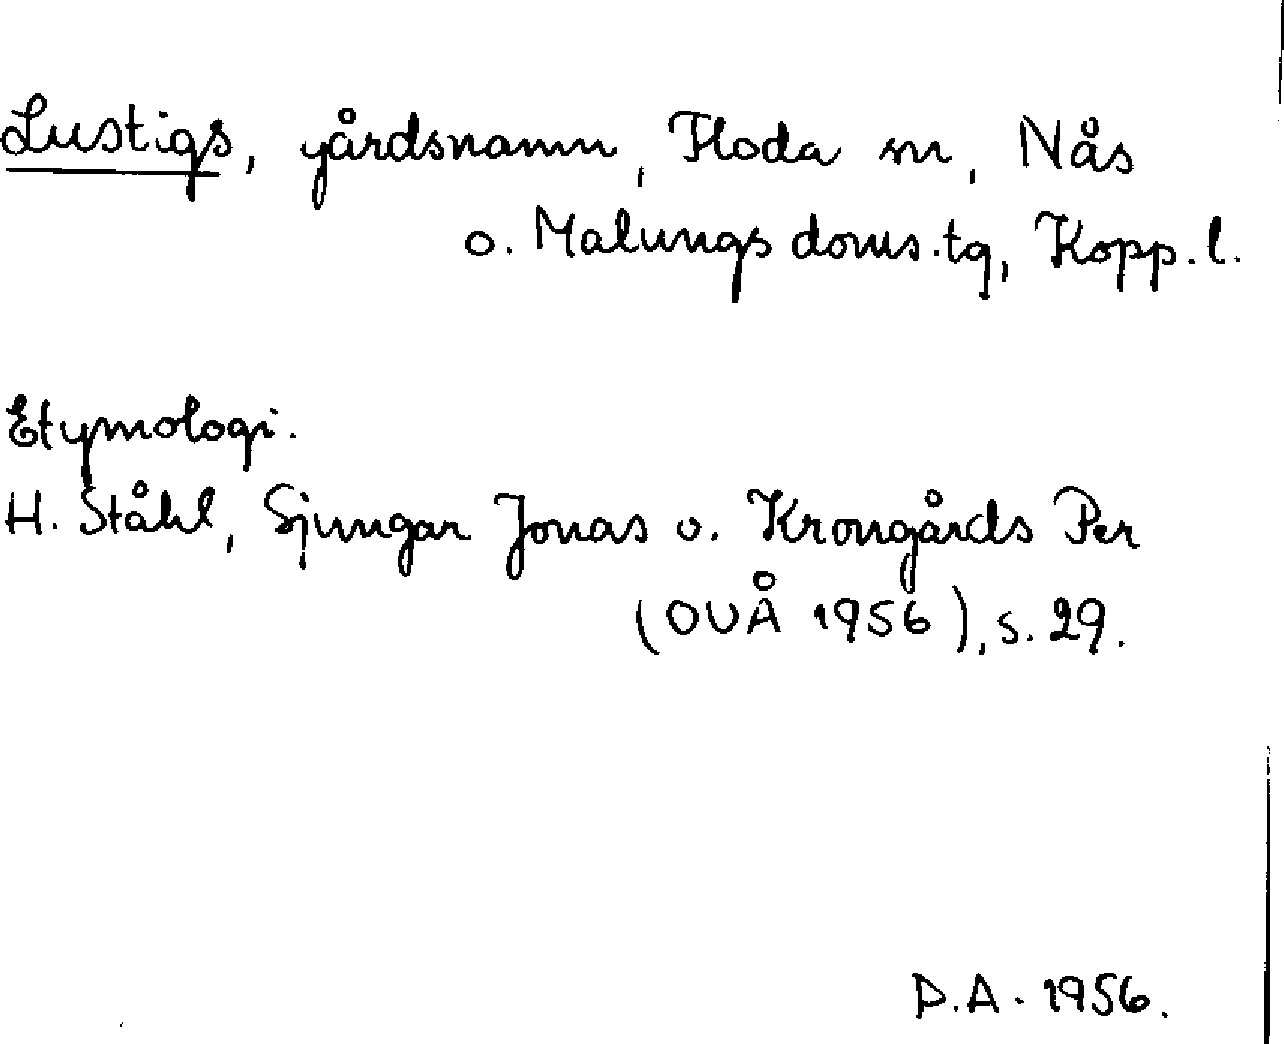 Lustigs, gårdsnamn, Floda sn, Nås
o. Malungs doms.tg, Kopp.l.
Etymologi.
H. Ståhl, Sjungar Jonas o. Krongårds Per
(OUÅ 1956), s. 29.
D.A. 1956.